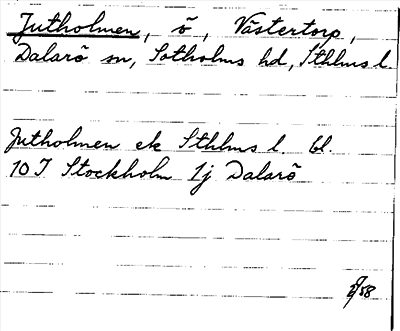 Jutholmen, ö, Västertorp,
Dalarö sn, Sotholms hd, Sthlms l.
Jutholmen ek Sthlms l. bl.
10 I Stockholm 1j Dalarö